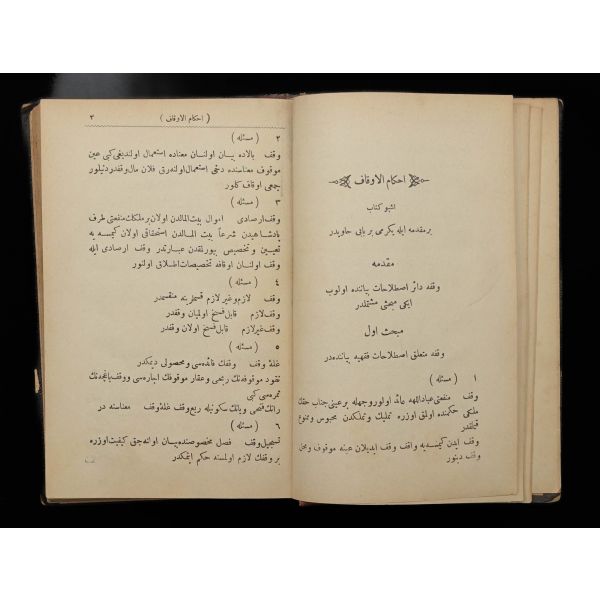 احكام الاوقاف
اشبو كتاب
بر مقدمه ايله يكرمى بر بابى حاويدر
مقدمه
وقفه دائر اصطلاحات بياننده اولوب
ايكى مبحثى مشتملدر
مبحث اول
وقفه متعلق اصطلاحات فقهيه بياننده در
١ (مسئله)
وقف منفعتى عباداللهه عائد اولور وجهله بر عينى جناب حقك
ملكى حكمنده اولمق اوزره تمليك و تملكدن محبوس و ممنوع
قيلمقدر
وقف ايدن كيمسه يه واقف وقف ايديلان عينه موقوف و محل
وقف دينور
(احكام الاوقاف) ٣
٢ (مسئله)
وقف بالاده بيان اولنان معناده استعمال اولنديغى كبى عين
موقوف معناسنده دخى استعمال اولنه رق فلان مال وقفدر دنيلور
جمعى اوقاف كلور
٣ (مسئله)
وقف ارصادى اموال بيت المالدن اولان بر ملكك منفعتى طرف
پادشاهيدن شرعاً بيت المالدن استحقاقى اولان كيمسه يه
تعيين و تخصيص بيورلمقدن عبارتدر وقف ارصادى ايله
وقف اولنان اوقافه تخصيصات اطلاق اولنور
٤ (مسئله)
وقف لازم و غير لازم قسملرينه منقسمدر
وقف لازم قابل فسخ اولميان وقفدر
وقف غير لازم قابل فسخ اولان وقفدر
٥ (مسئله)
غلۀ وقف وقفك فائده سى و محصولى ديمكدر
نقود موقوفه نك ربحى و عقار موقوفك اجاره سى و وقف باغچه نك
ثمره سى كبى
رانك فتحى و يانك سكونيله ريع وقف غلۀ وقف معناسنه در
٦ (مسئله)
تسجيل وقف فصل مخصوصنده بيان اولنه جق كيفيت اوزره
بر وقفك لازم اولمسنه حكم ايتمكدر